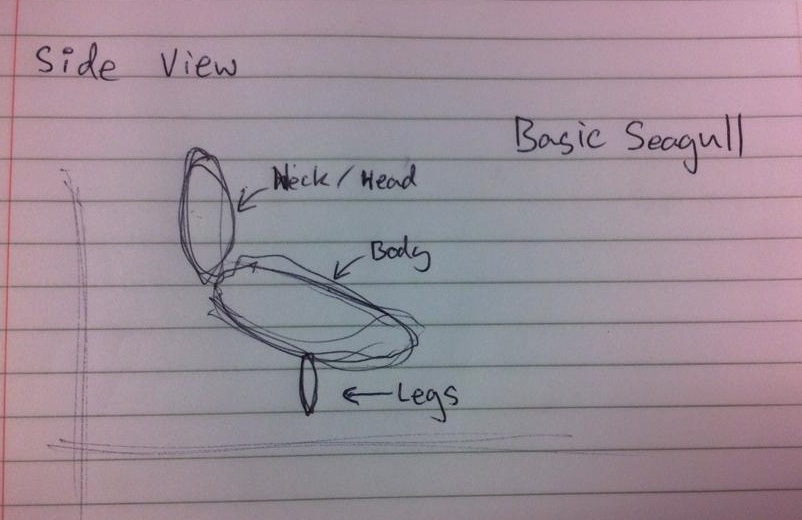 Side View
Basic Seagull
Neck / Head
Body
Legs